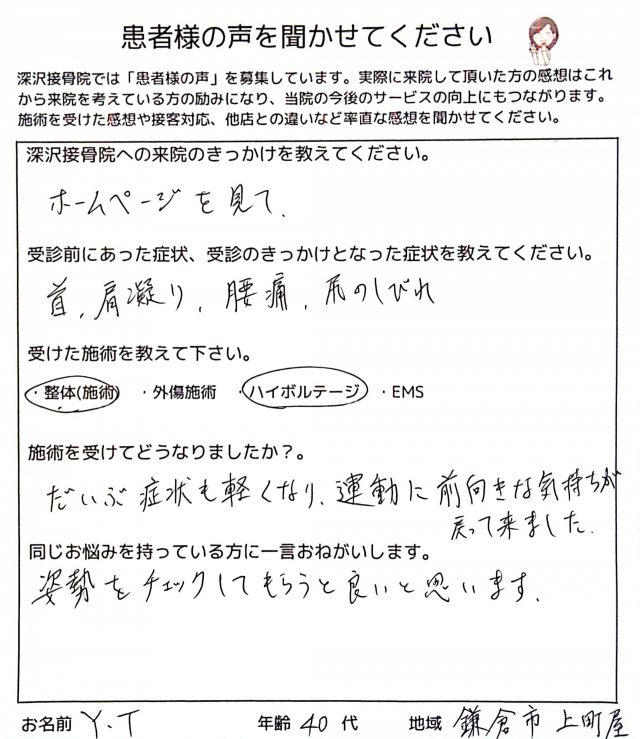 患者様の声を聞かせてください
深沢接骨院では「患者様の声」を募集しています。実際に来院して頂いた方の感想はこれ
から来院を考えている方の励みになり、当院の今後のサービスの向上にもつながります。
施術を受けた感想や接客対応、他店との違いなど率直な感想を聞かせてください。
深沢接骨院への来院のきっかけを教えてください。
ホームページを見て.
受診前にあった症状、受診のきっかけとなった症状を教えてください。
首,肩凝り,腰痛,尻のしびれ
受けた施術を教えて下さい。
・整体(施術) ・外傷施術 ・ハイボルテージ ・EMS
施術を受けてどうなりましたか？。
だいぶ症状も軽くなり、運動に前向きな気持ちが
戻って来ました.
同じお悩みを持っている方に一言おねがいします。
姿勢をチェックしてもらうと良いと思います.
お名前 Y・T 年齢 40 代 地域 鎌倉市上町屋